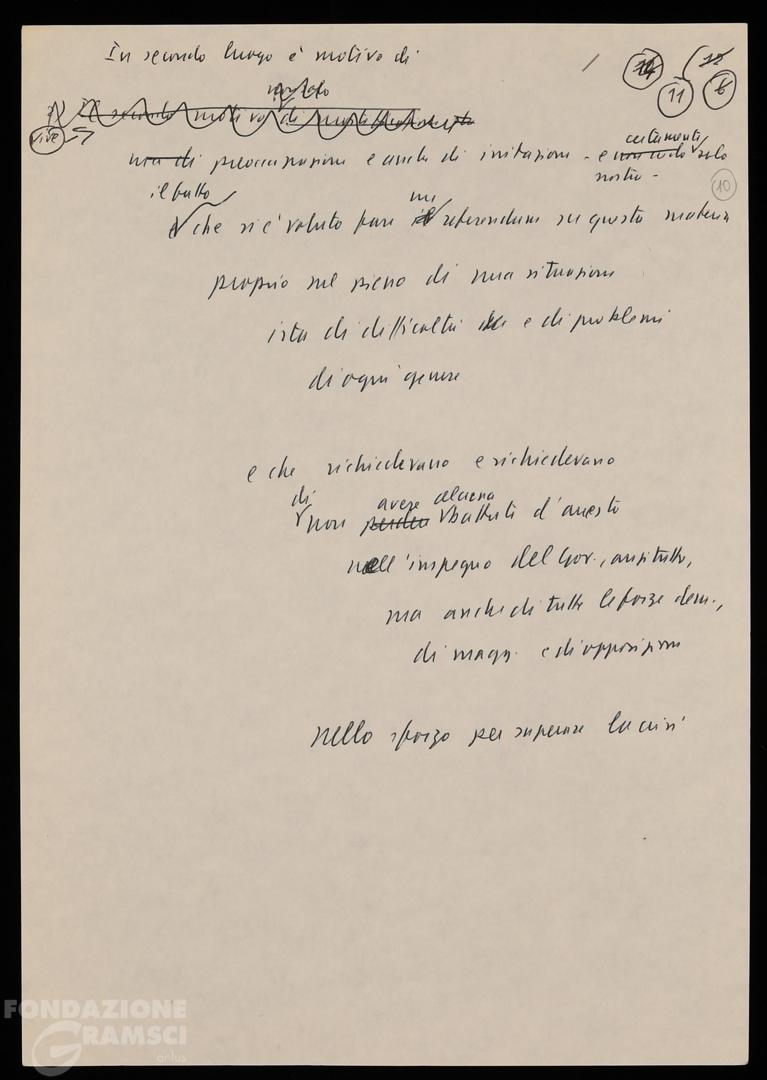 In secondo luogo è motivo di
14
12
11
6
Il secondo motivo di
vive
ma di preoccupazione e anche di irritazione - e non credo certamente solo
nostra -
10
il fatto
è che si è voluto fare il un referendum su questa materia
proprio nel pieno di una situazione
irta di difficoltà e di problemi
di ogni genere
e che richiedevano e richiederanno
di
non perdere avere alcuna battuta d'arresto
nell'impegno del Gov., anzitutto,
ma anche di tutte le forze dem.,
di magg. e di opposizione
nello sforzo per superare la crisi
FONDAZIONE
GRAMSCI
onlus